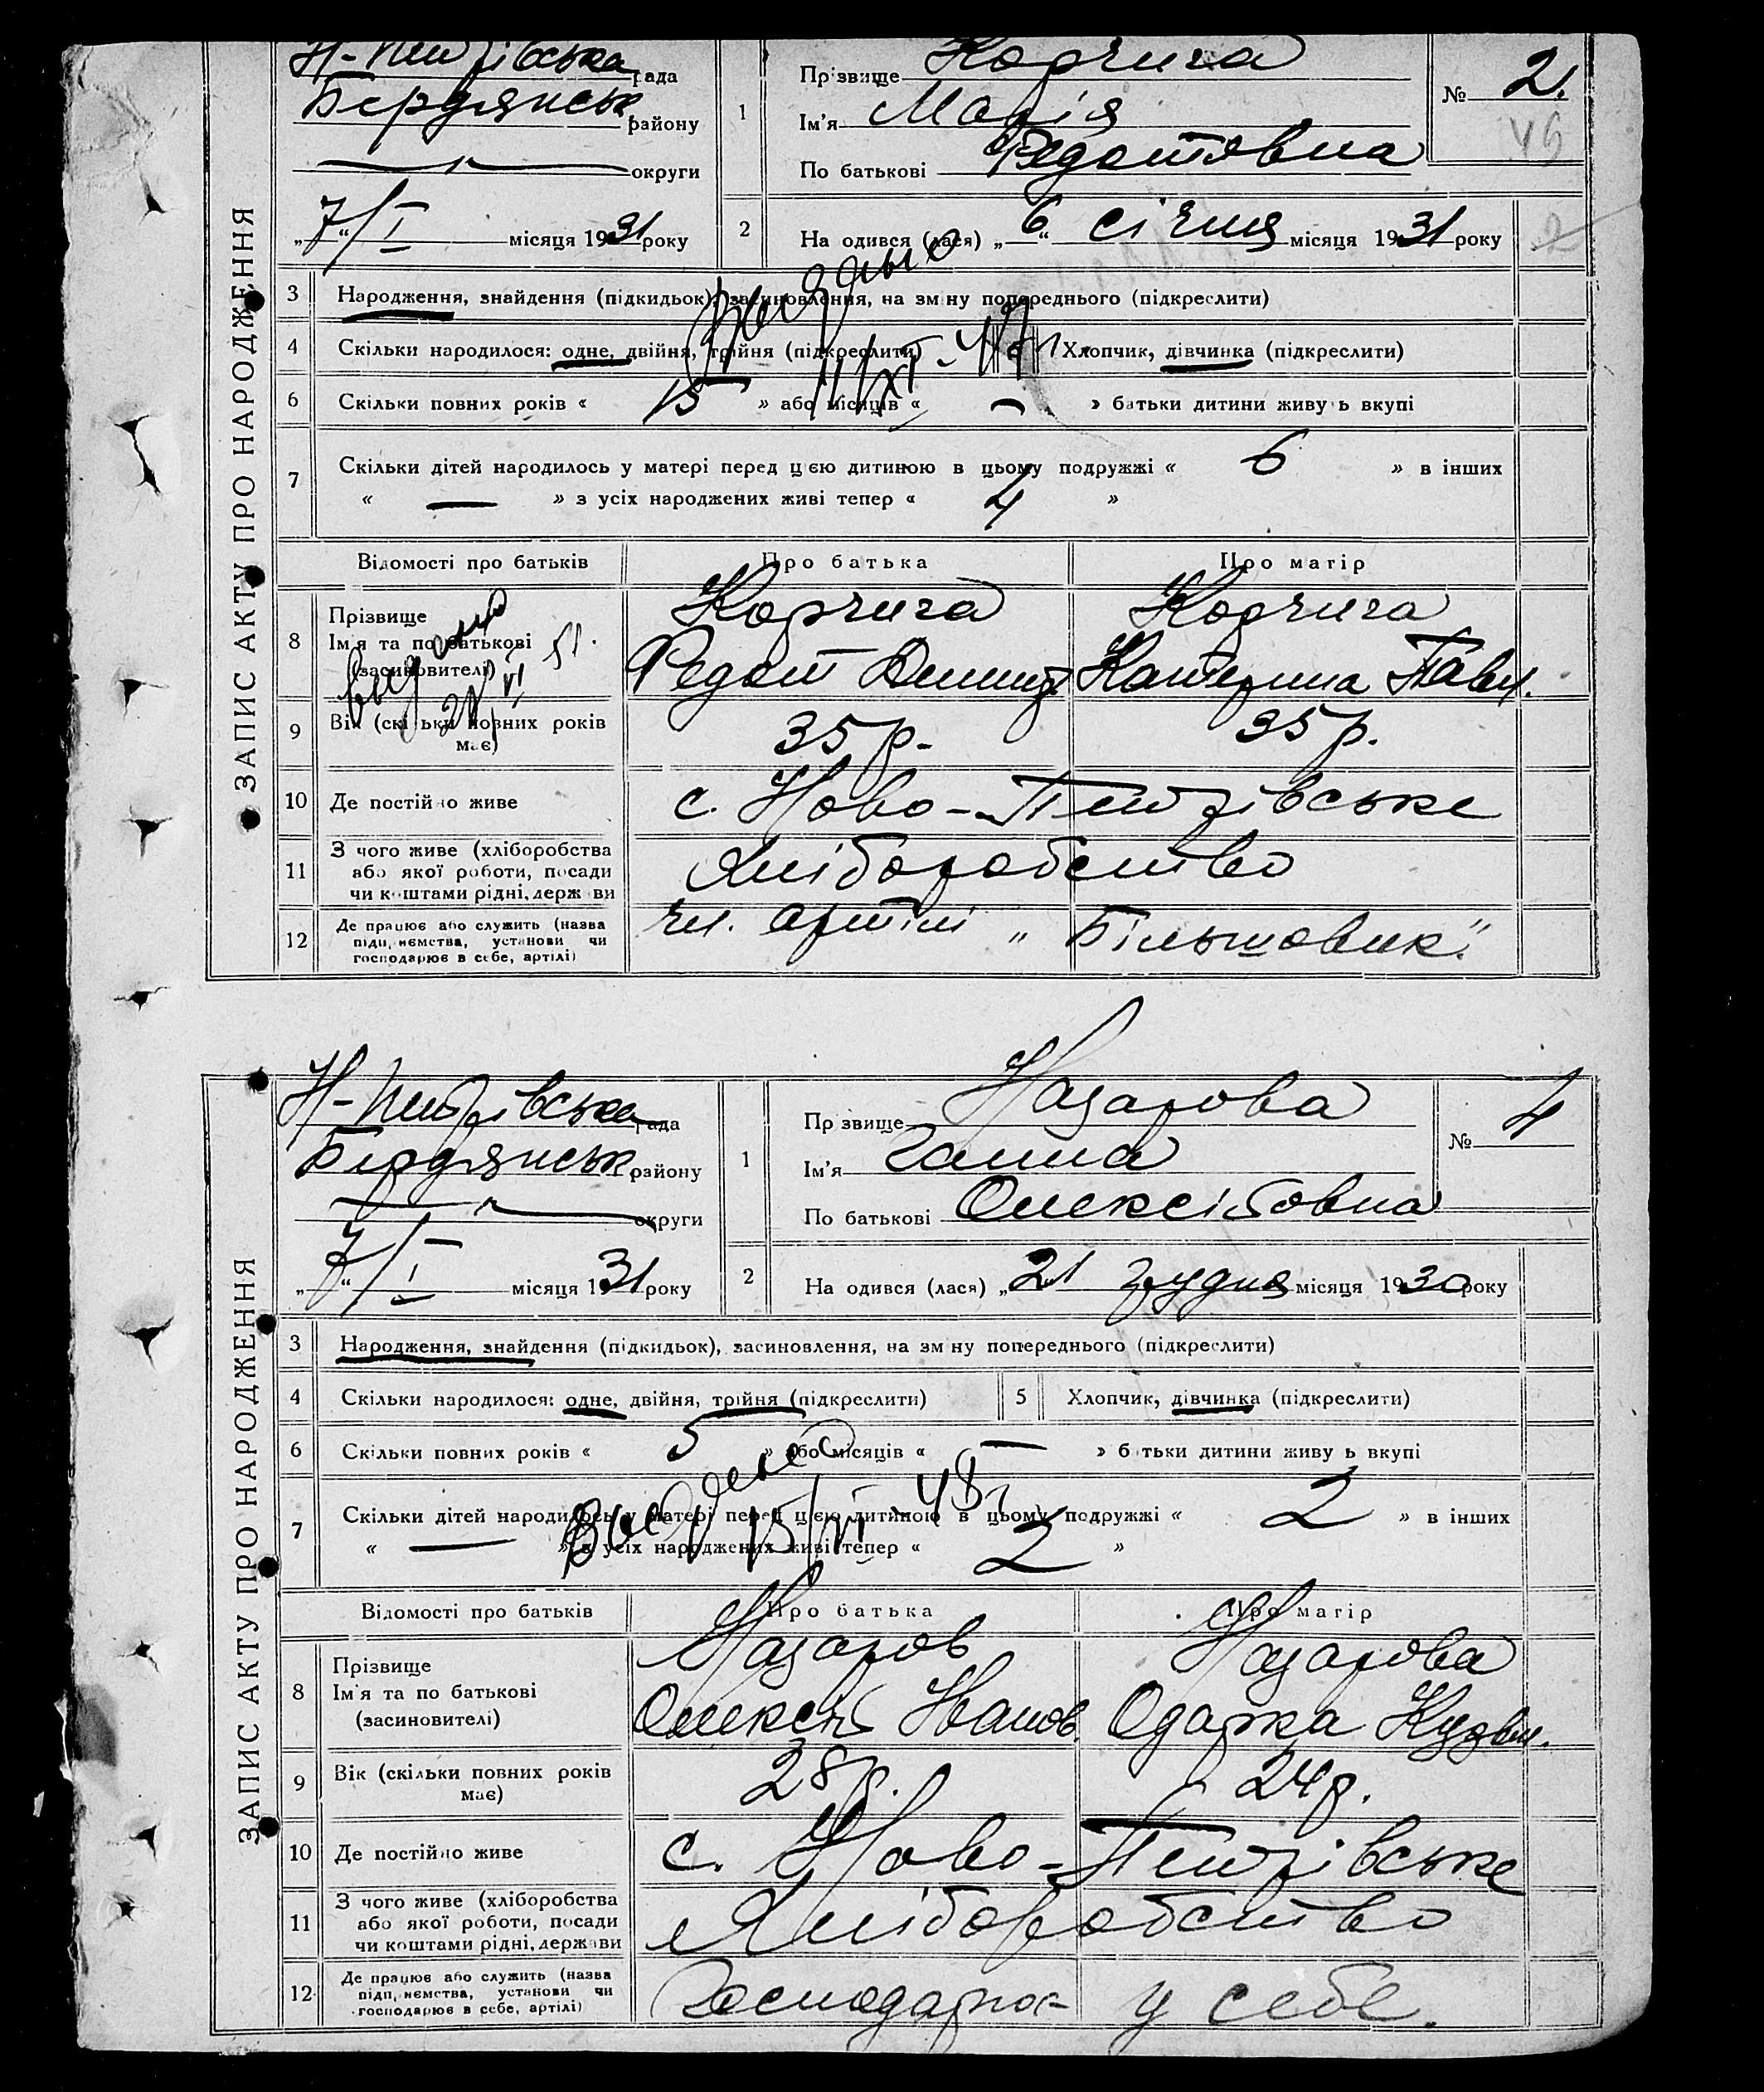 ЗАПИС АКТУ ПРО НАРОДЖЕННЯ
Н-Петрівська рада
Бердянськ району
— округи
„7“/I місяця 1931 року
1
Прізвище Корчига
Ім'я Марія
По батькові Федотовна
№ 2.
2
На одився (лася) „6“ січня місяця 1931 року
3 Народження, знайдення (підкидьок), засиновлення, на зміну попереднього (підкреслити)
4 Скільки народилося: одне, двійня, трійня (підкреслити) Хлопчик, дівчинка (підкреслити)
6 Скільки повних років « 15 » або місяців « — » батьки дитини живу ь вкупі
7 Скільки дітей народилось у матері перед цією дитиною в цьому подружжі « 6 » в інших
« — » з усіх народжених живі тепер « 4 »
Відомості про батьків Про батька Про матір
8 Прізвище
Ім'я та по батькові
(засиновителі)
Корчига Корчига
Федот Катерина Павл.
9 Вік (скільки повних років
має)
35 р. 35 р.
10 Де постійно живе с. Ново-Петрівське
11 З чого живе (хліборобства
або якої роботи, посади
чи коштами рідні, держави
Хліборобство
12 Де працює або служить (назва
підприємства, установи чи
господарює в себе, артілі)
чл. артілі „Більшовик"
ЗАПИС АКТУ ПРО НАРОДЖЕННЯ
Н-Петрівська рада
Бердянськ району
— округи
„7“/I місяця 1931 року
1
Пр звище Назарова
Ім'я Ганна
По батькові Олексіївовна
№ 4
2
На одився (лася) „21 грудня місяця 1930 року
3 Народження, знайдення (підкидьок), засиновлення, на зміну попереднього (підкреслити)
4 Скільки народилося: одне, двійня, трійня (підкреслити) 5 Хлопчик, дівчинка (підкреслити)
6 Скільки повних років « 5 » або місяців « — » б тьки дитини живу ь вкупі
7 Скільки дітей народилось у матері перед цією дитиною в цьому подружжі « 2 » в інших
« — » з усіх народжених живі тепер « 2 »
Відомості про батьків Про батька Про матір
8 Прізвище
Ім'я та по батькові
(засиновителі)
Назаров Назарова
Олексій Іванов. Одарка Кузьм.
9 Вік (скільки повних років
має)
28 р. 24 р.
10 Де постійно живе с. Ново-Петрівське
11 З чого живе (хліборобства
або якої роботи, посади
чи коштами рідні, держави
Хліборобство
12 Де працює або служить (назва
підприємства, установи чи
господарює в себе, артілі)
Господарює у себе.